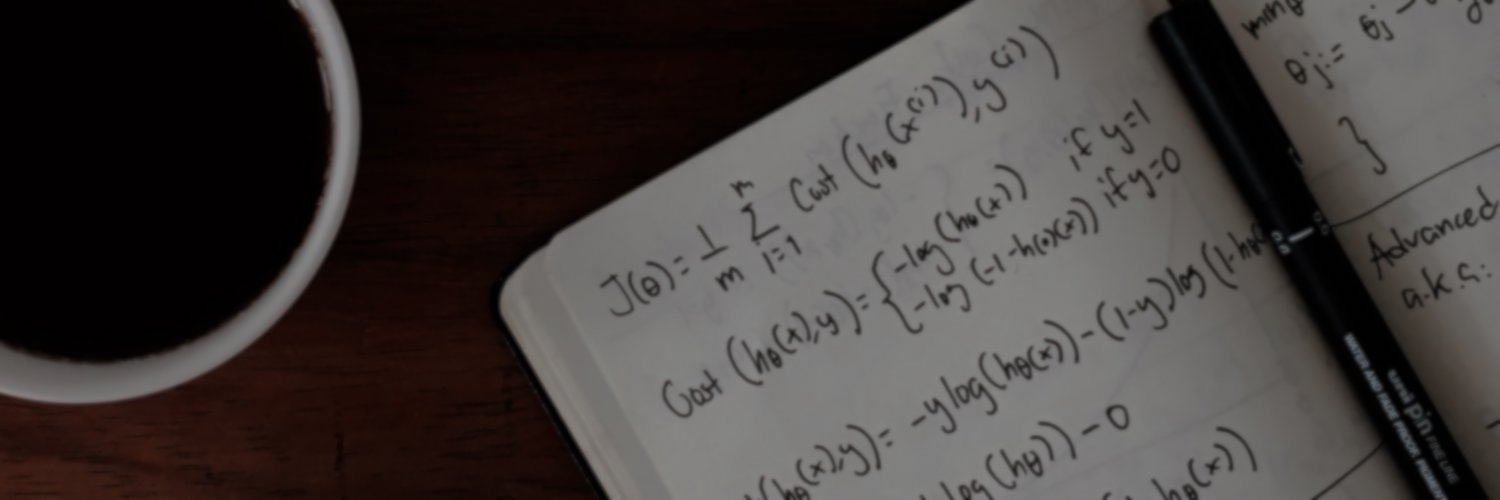 J(θ) = 1/m m Σ i=1 Cost (hθ(x^(i)), y^(i))
Cost (hθ(x), y) = { -log (hθ(x)) if y=1
-log (-1-h(θ)(x)) if y=0
(hθ(x), y) = -y log(hθ(x)) - (1-y) log (1-hθ(
log (hθ)) - 0
hθ(x))
min θ
θj := θj -
}
Advanced
a.k.a:
uni pin FINE LINE
WATER AND FADE PROOF, PIGMENT